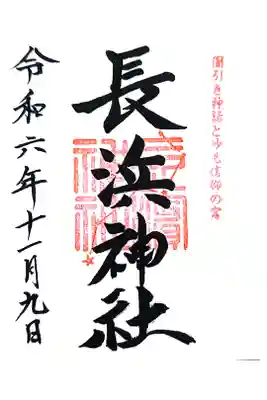 国引き神話とよも信仰の宮
長浜神社
令和六年十一月九日